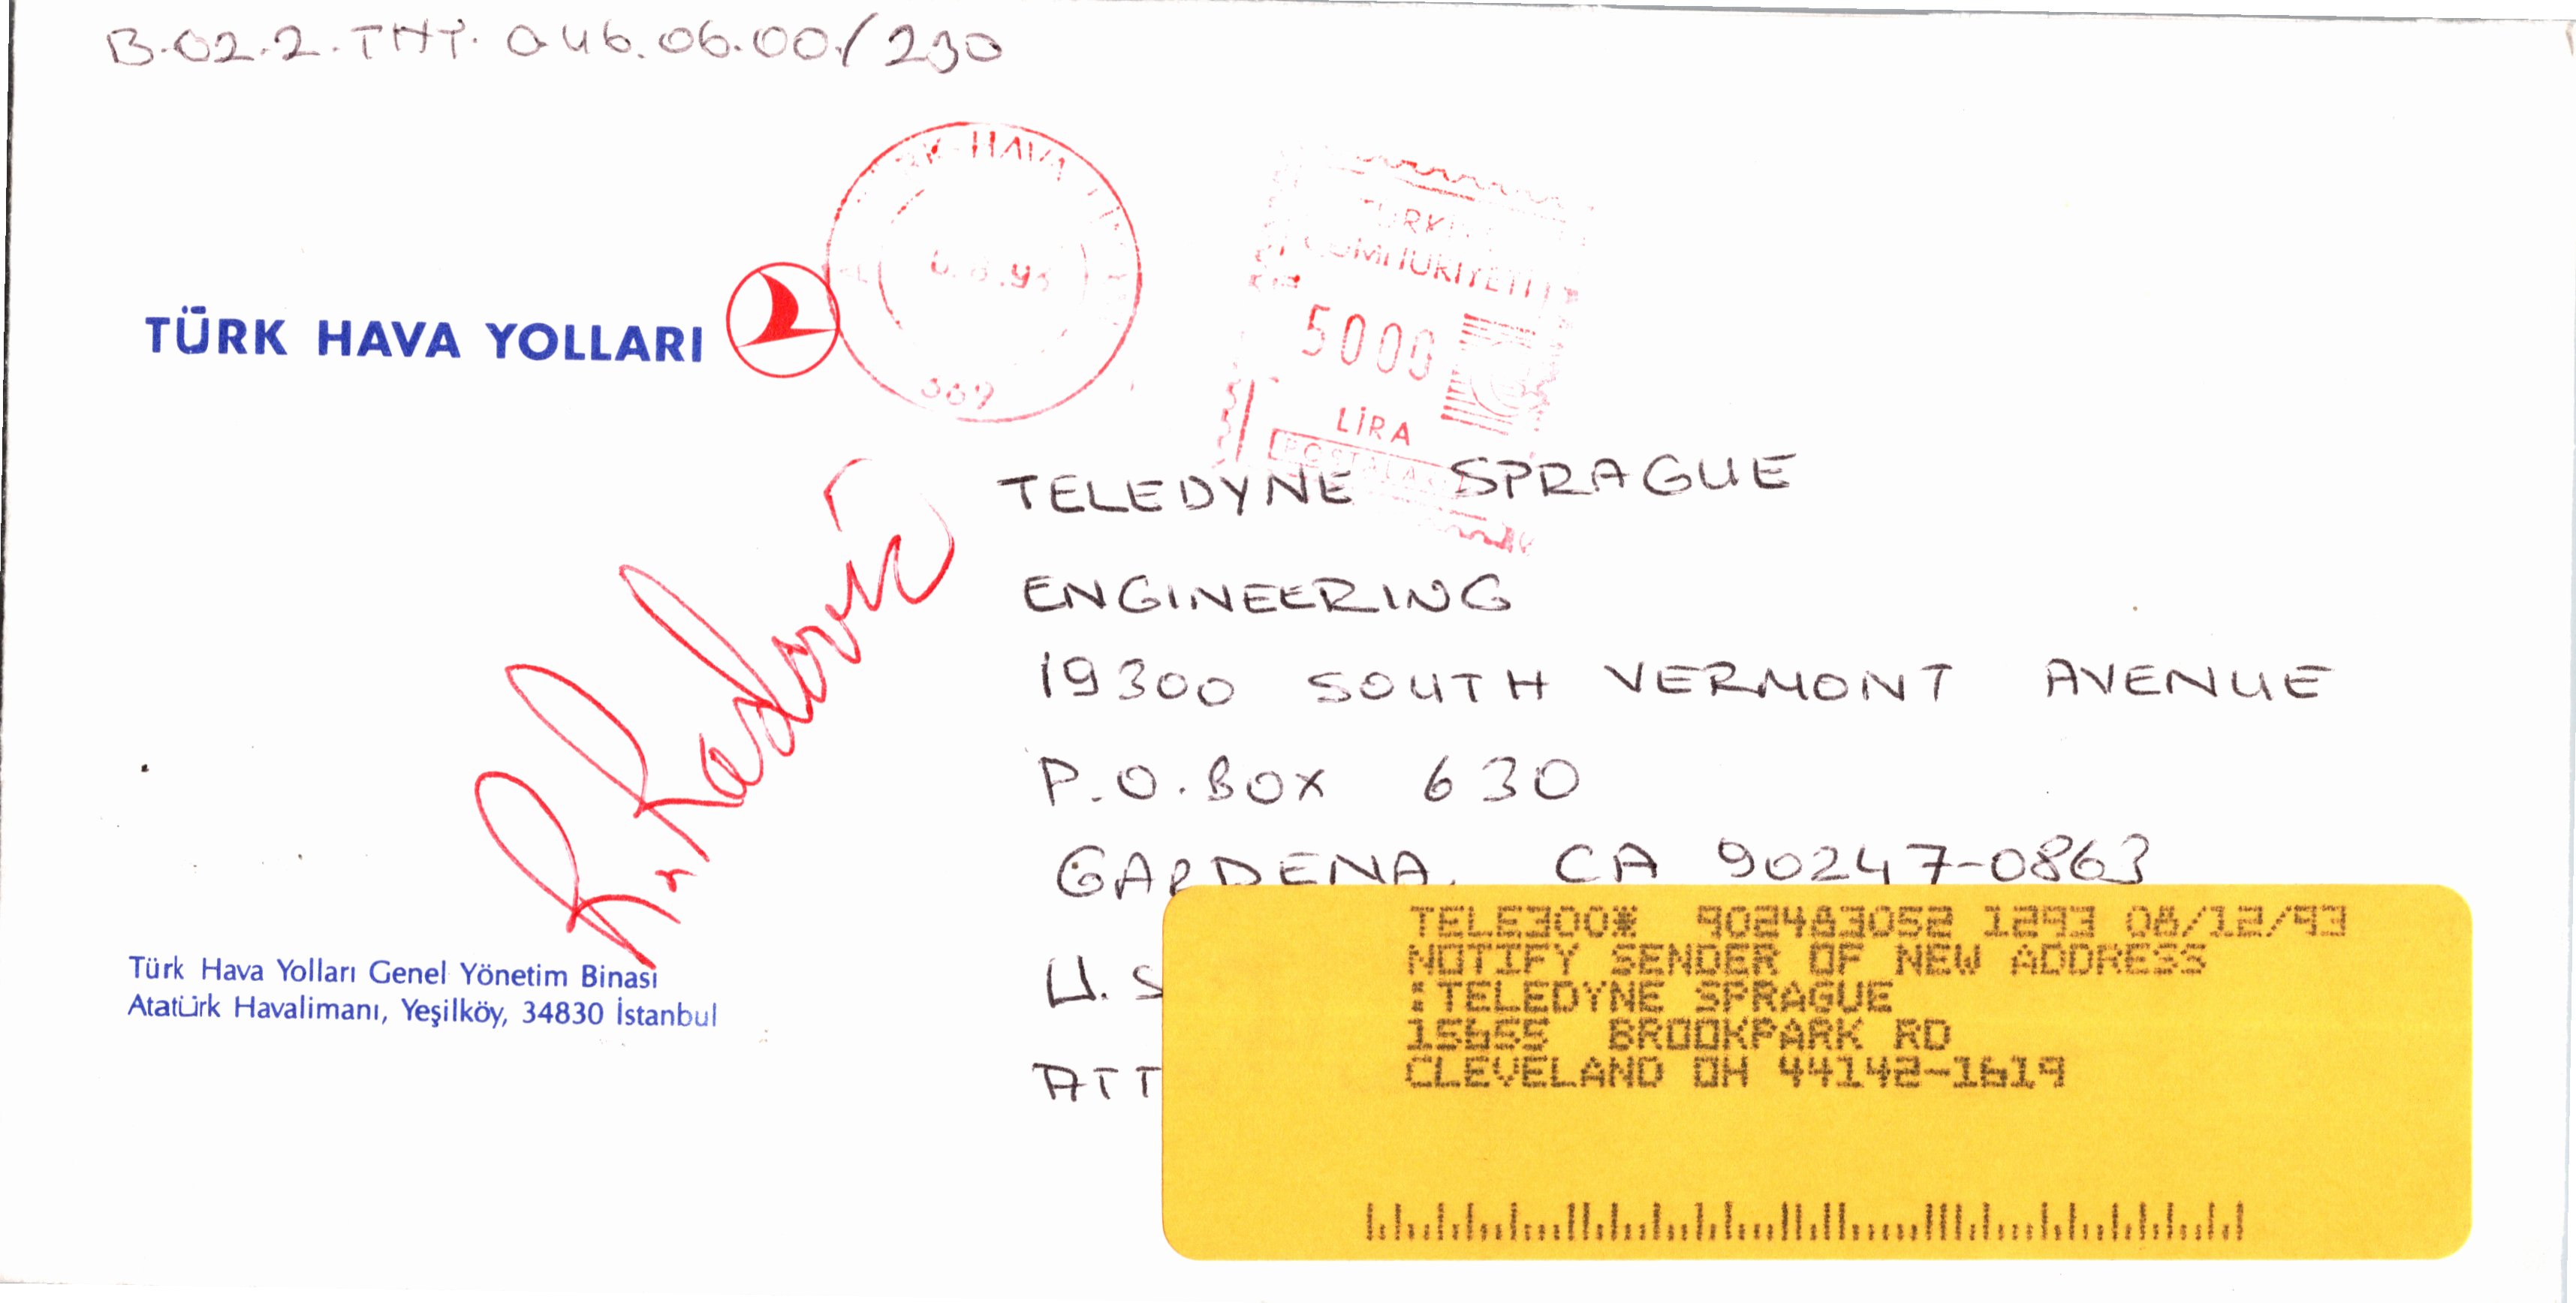 B.02.2.THY. 046.06.00/230
HAVA
TÜRK HAVA YOLLARI
CUMHURİYETİ
5000
LİRA
TELEDYNE SPRAGUE
ENGINEERING
19300 SOUTH VERMONT AVENUE
P.O.BOX 630
GARDENA, CA 90247-0863
U.S
ATT
R. Radovic
TELE300* 902483052 1293 08/12/93
NOTIFY SENDER OF NEW ADDRESS
:TELEDYNE SPRAGUE
15655 BROOKPARK RD
CLEVELAND OH 44142-1619
Türk Hava Yolları Genel Yönetim Binası
Atatürk Havalimanı, Yeşilköy, 34830 İstanbul